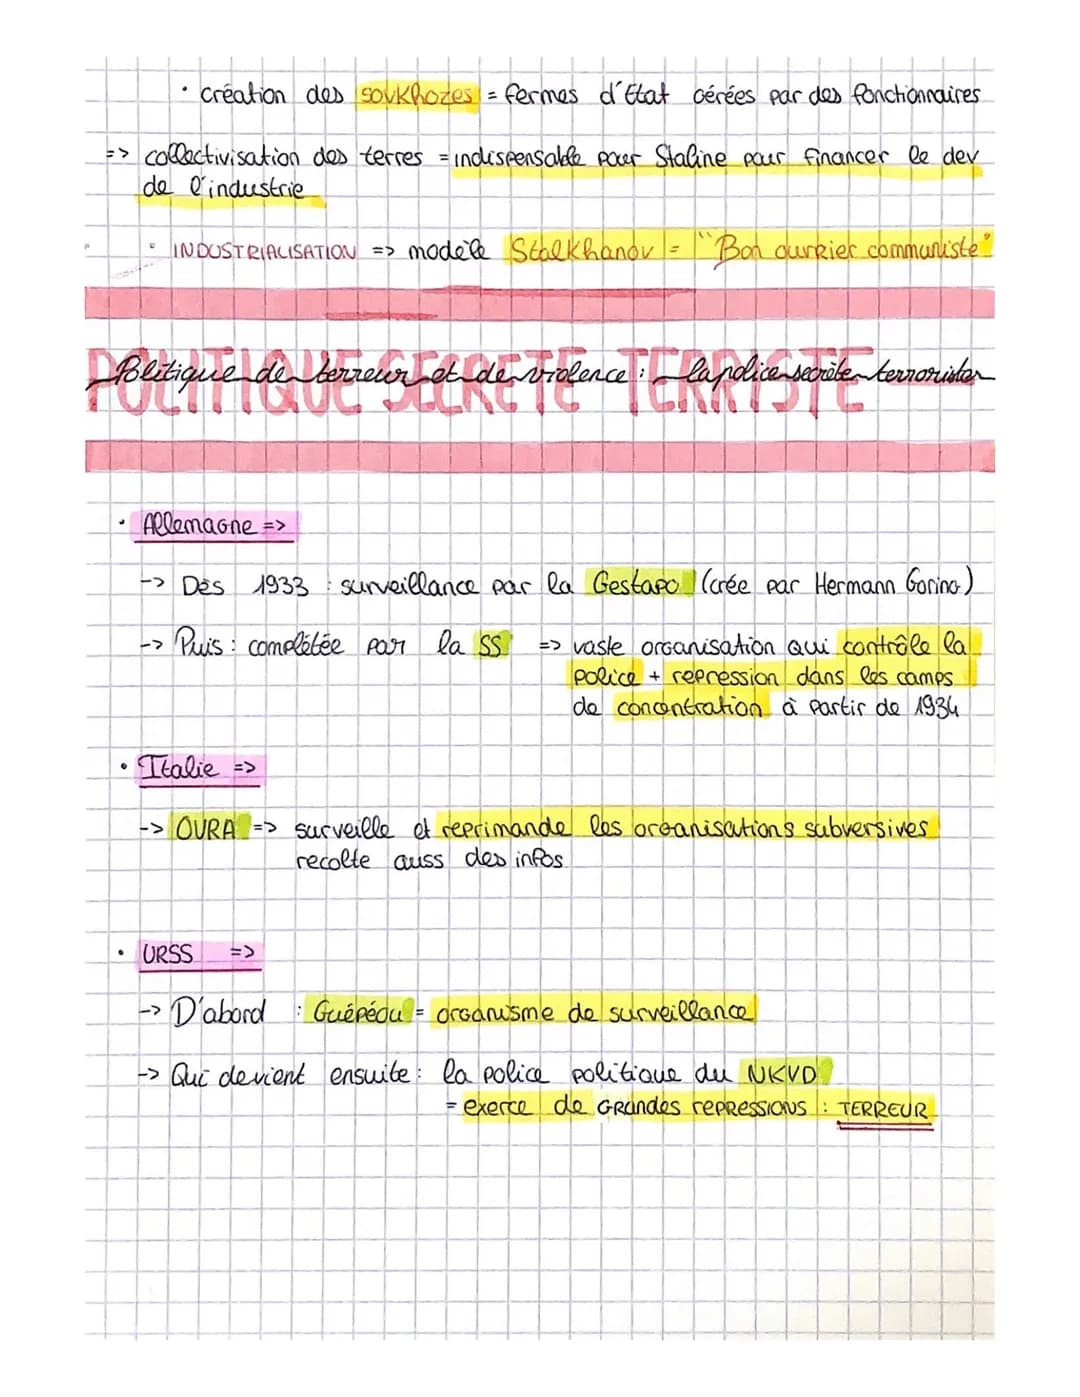 · création des sovkhozes = fermes d'Etat gérées par des fonctionnaires
=> collectivisation des terres = indispensable pour Staline pour financer le dev
de l'industrie
· INDUSTRIALISATION => modèle Stalkhanov = "Bon ouvrier communiste"
POLITIQUE SECRETE TERRISTE
Politique de terreur et de violence : la police secrète terroriste
· Allemagne =>
-> Dès 1933 : surveillance par la Gestapo (crée par Hermann Göring)
-> Puis : complétée par la SS => vaste organisation qui contrôle la
police + repression dans les camps
de concentration à partir de 1934
· Italie =>
-> OVRA => surveille et reprimande les organisations subversives
recolte auss des infos
· URSS =>
-> D'abord : Guépéou = organisme de surveillance
-> Qui devient ensuite : la police politique du NKVD
= exerce de GRANDES REPRESSIONS : TERREUR